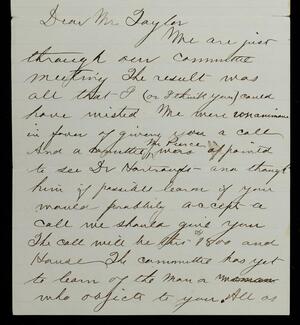 Dear Mr Taylor
We are just
through our committee
meeting The result was
all that I (or I think you) could
have wished We were unanimous
in favor of giving you a call
And a committee Mr Pierce was appointed
to see Dr Hartranft - and through
him if possible learn if you
would probably accept a
call we should give you
The call will be for $1800 and
House The committee has yet
to learn of the man or woman
who objects to you. All as